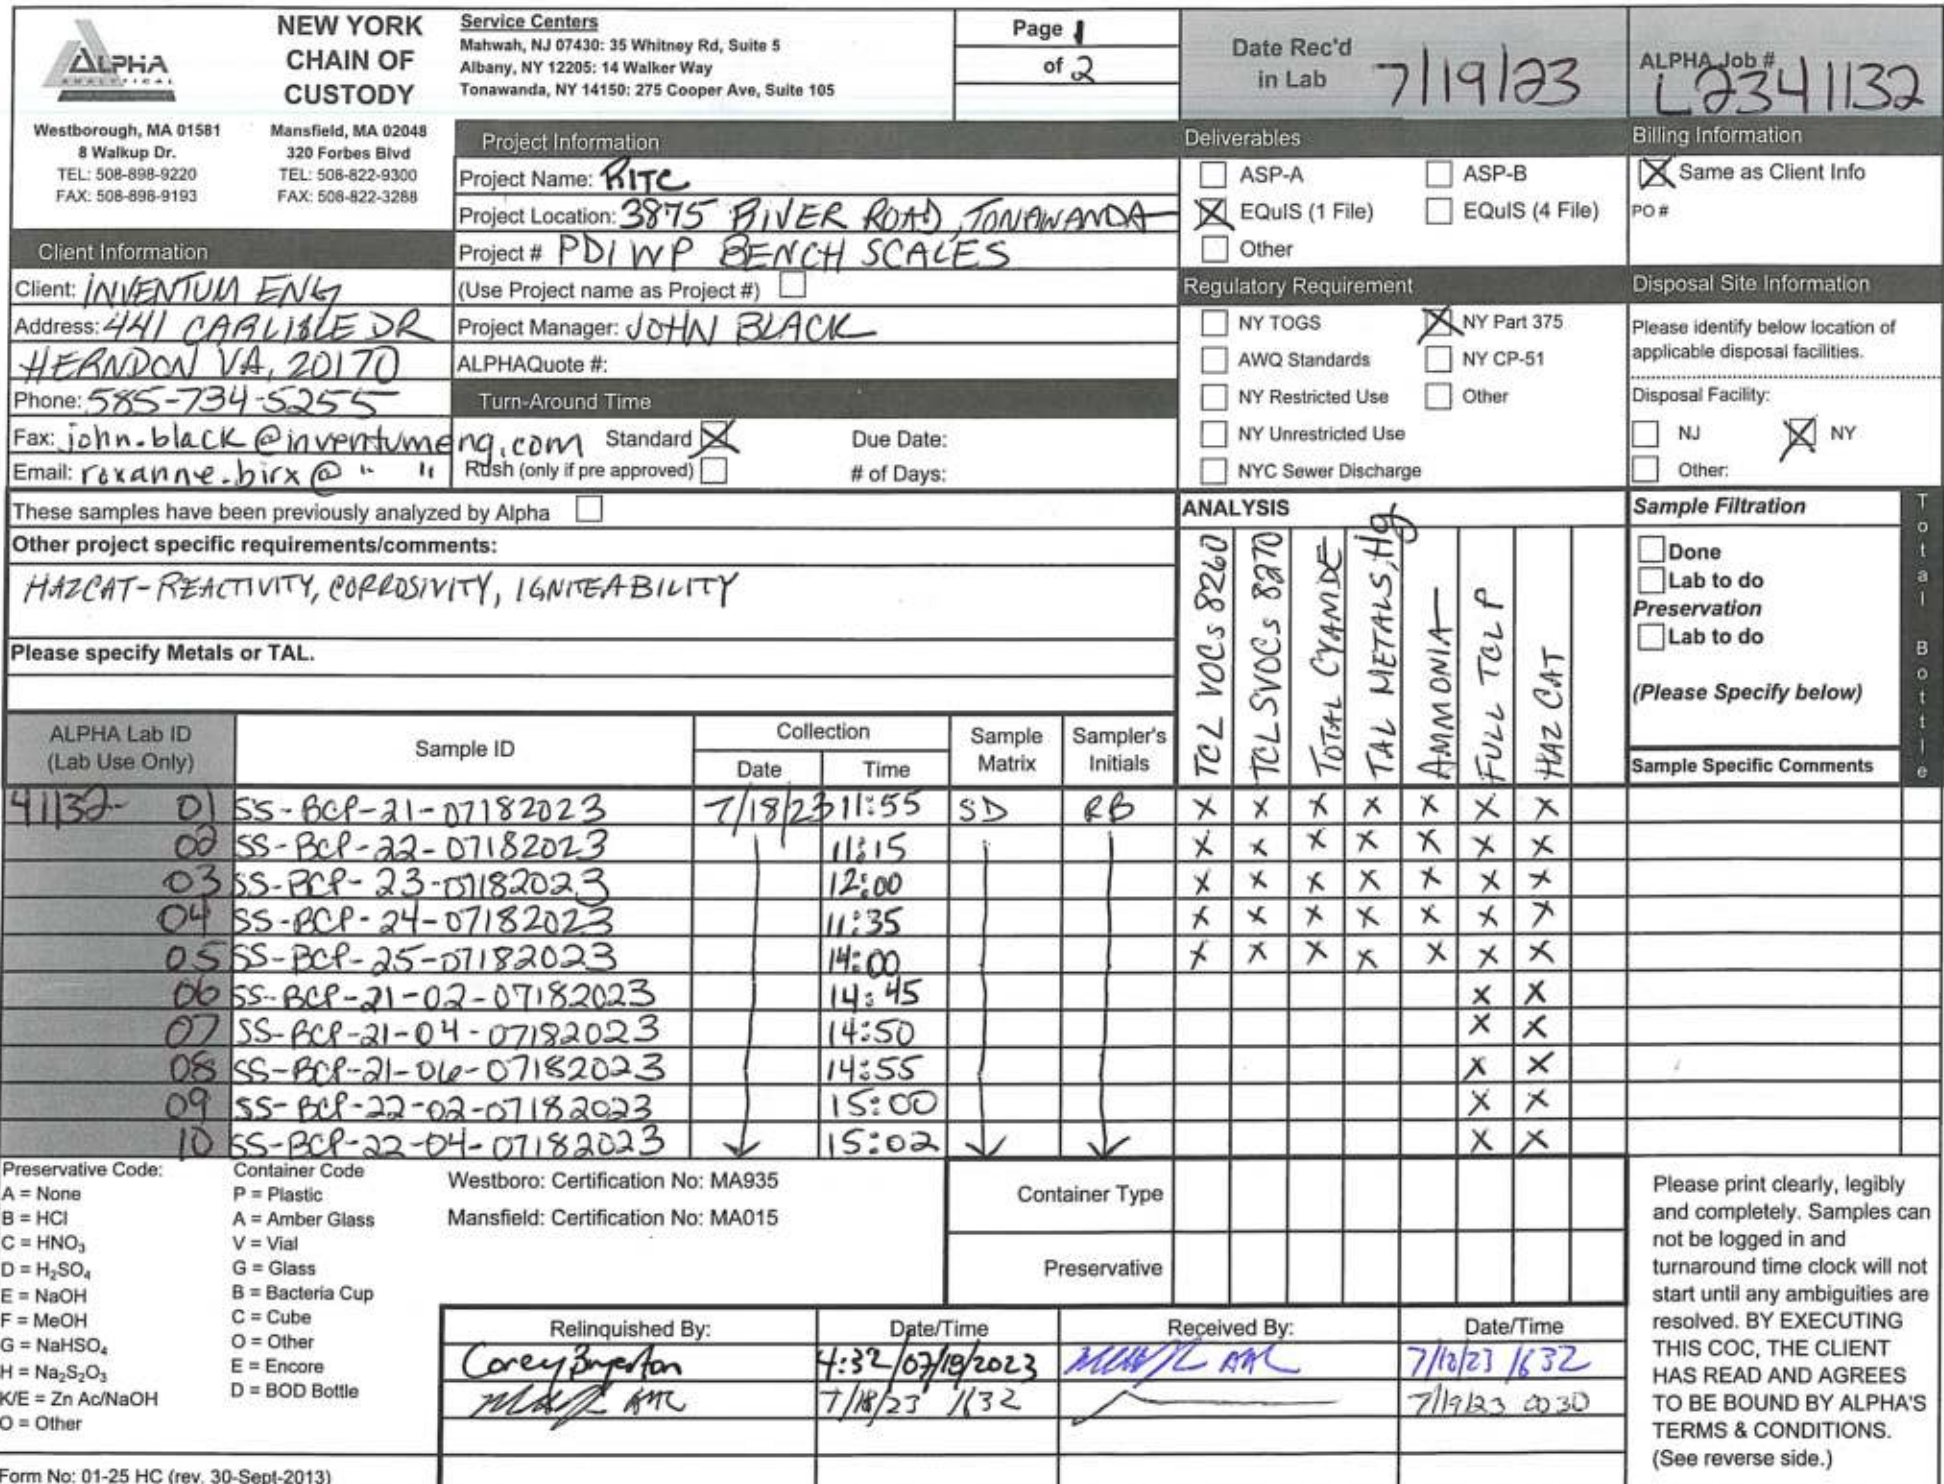 ALPHA
ANALYTICAL
NEW YORK
CHAIN OF
CUSTODY
Service Centers
Mahwah, NJ 07430: 35 Whitney Rd, Suite 5
Albany, NY 12205: 14 Walker Way
Tonawanda, NY 14150: 275 Cooper Ave, Suite 105
Page 1
of 2
Date Rec'd
in Lab
7/19/23
ALPHA Job #
L2341132
Westborough, MA 01581
8 Walkup Dr.
TEL: 508-898-9220
FAX: 508-898-9193
Mansfield, MA 02048
320 Forbes Blvd
TEL: 508-822-9300
FAX: 508-822-3288
Project Information
Project Name: RITC
Project Location: 3875 RIVER ROAD, TONAWANDA
Project # PDI WP BENCH SCALES
(Use Project name as Project #)
Project Manager: JOHN BLACK
ALPHAQuote #:
Turn-Around Time
Standard X Due Date:
Rush (only if pre approved) # of Days:
Client Information
Client: INVENTUM ENG
Address: 441 CARLISLE DR
HERNDON VA, 20170
Phone: 585-734-5255
Fax: john.black@inventumeng.com
Email: roxanne.birx@ " "
Deliverables
ASP-A ASP-B
X EQuIS (1 File) EQuIS (4 File)
Other
Regulatory Requirement
NY TOGS X NY Part 375
AWQ Standards NY CP-51
NY Restricted Use Other
NY Unrestricted Use
NYC Sewer Discharge
Billing Information
X Same as Client Info
PO #
Disposal Site Information
Please identify below location of
applicable disposal facilities.
Disposal Facility:
NJ X NY
Other:
These samples have been previously analyzed by Alpha
Other project specific requirements/comments:
HAZCAT-REACTIVITY, CORROSIVITY, IGNITEABILITY
Please specify Metals or TAL.
ANALYSIS
TCL VOCs 8260
TCL SVOCs 8270
TOTAL CYANIDE
TAL METALS, Hg
AMMONIA
FULL TCLP
HAZ CAT
Sample Filtration
Done
Lab to do
Preservation
Lab to do
(Please Specify below)
Total Bottle
ALPHA Lab ID
(Lab Use Only)
Sample ID
Collection
Date Time
Sample
Matrix
Sampler's
Initials
Sample Specific Comments
41132- 01 SS-BCP-21-07182023 7/18/23 11:55 SD RB X X X X X X X
02 SS-BCP-22-07182023 11:15 X X X X X X X
03 SS-BCP-23-07182023 12:00 X X X X X X X
04 SS-BCP-24-07182023 11:35 X X X X X X X
05 SS-BCP-25-07182023 14:00 X X X X X X X
06 SS-BCP-21-02-07182023 14:45 X X
07 SS-BCP-21-04-07182023 14:50 X X
08 SS-BCP-21-06-07182023 14:55 X X
09 SS-BCP-22-02-07182023 15:00 X X
10 SS-BCP-22-04-07182023 15:02 X X
Preservative Code:
A = None
B = HCl
C = HNO₃
D = H₂SO₄
E = NaOH
F = MeOH
G = NaHSO₄
H = Na₂S₂O₃
K/E = Zn Ac/NaOH
O = Other
Container Code
P = Plastic
A = Amber Glass
V = Vial
G = Glass
B = Bacteria Cup
C = Cube
O = Other
E = Encore
D = BOD Bottle
Westboro: Certification No: MA935
Mansfield: Certification No: MA015
Container Type
Preservative
Relinquished By: Date/Time Received By: Date/Time
Corey 4:32/07/19/2023 AAL 7/18/23 1632
7/18/23 1632 7/19/23 0030
Please print clearly, legibly
and completely. Samples can
not be logged in and
turnaround time clock will not
start until any ambiguities are
resolved. BY EXECUTING
THIS COC, THE CLIENT
HAS READ AND AGREES
TO BE BOUND BY ALPHA'S
TERMS & CONDITIONS.
(See reverse side.)
Form No: 01-25 HC (rev. 30-Sept-2013)